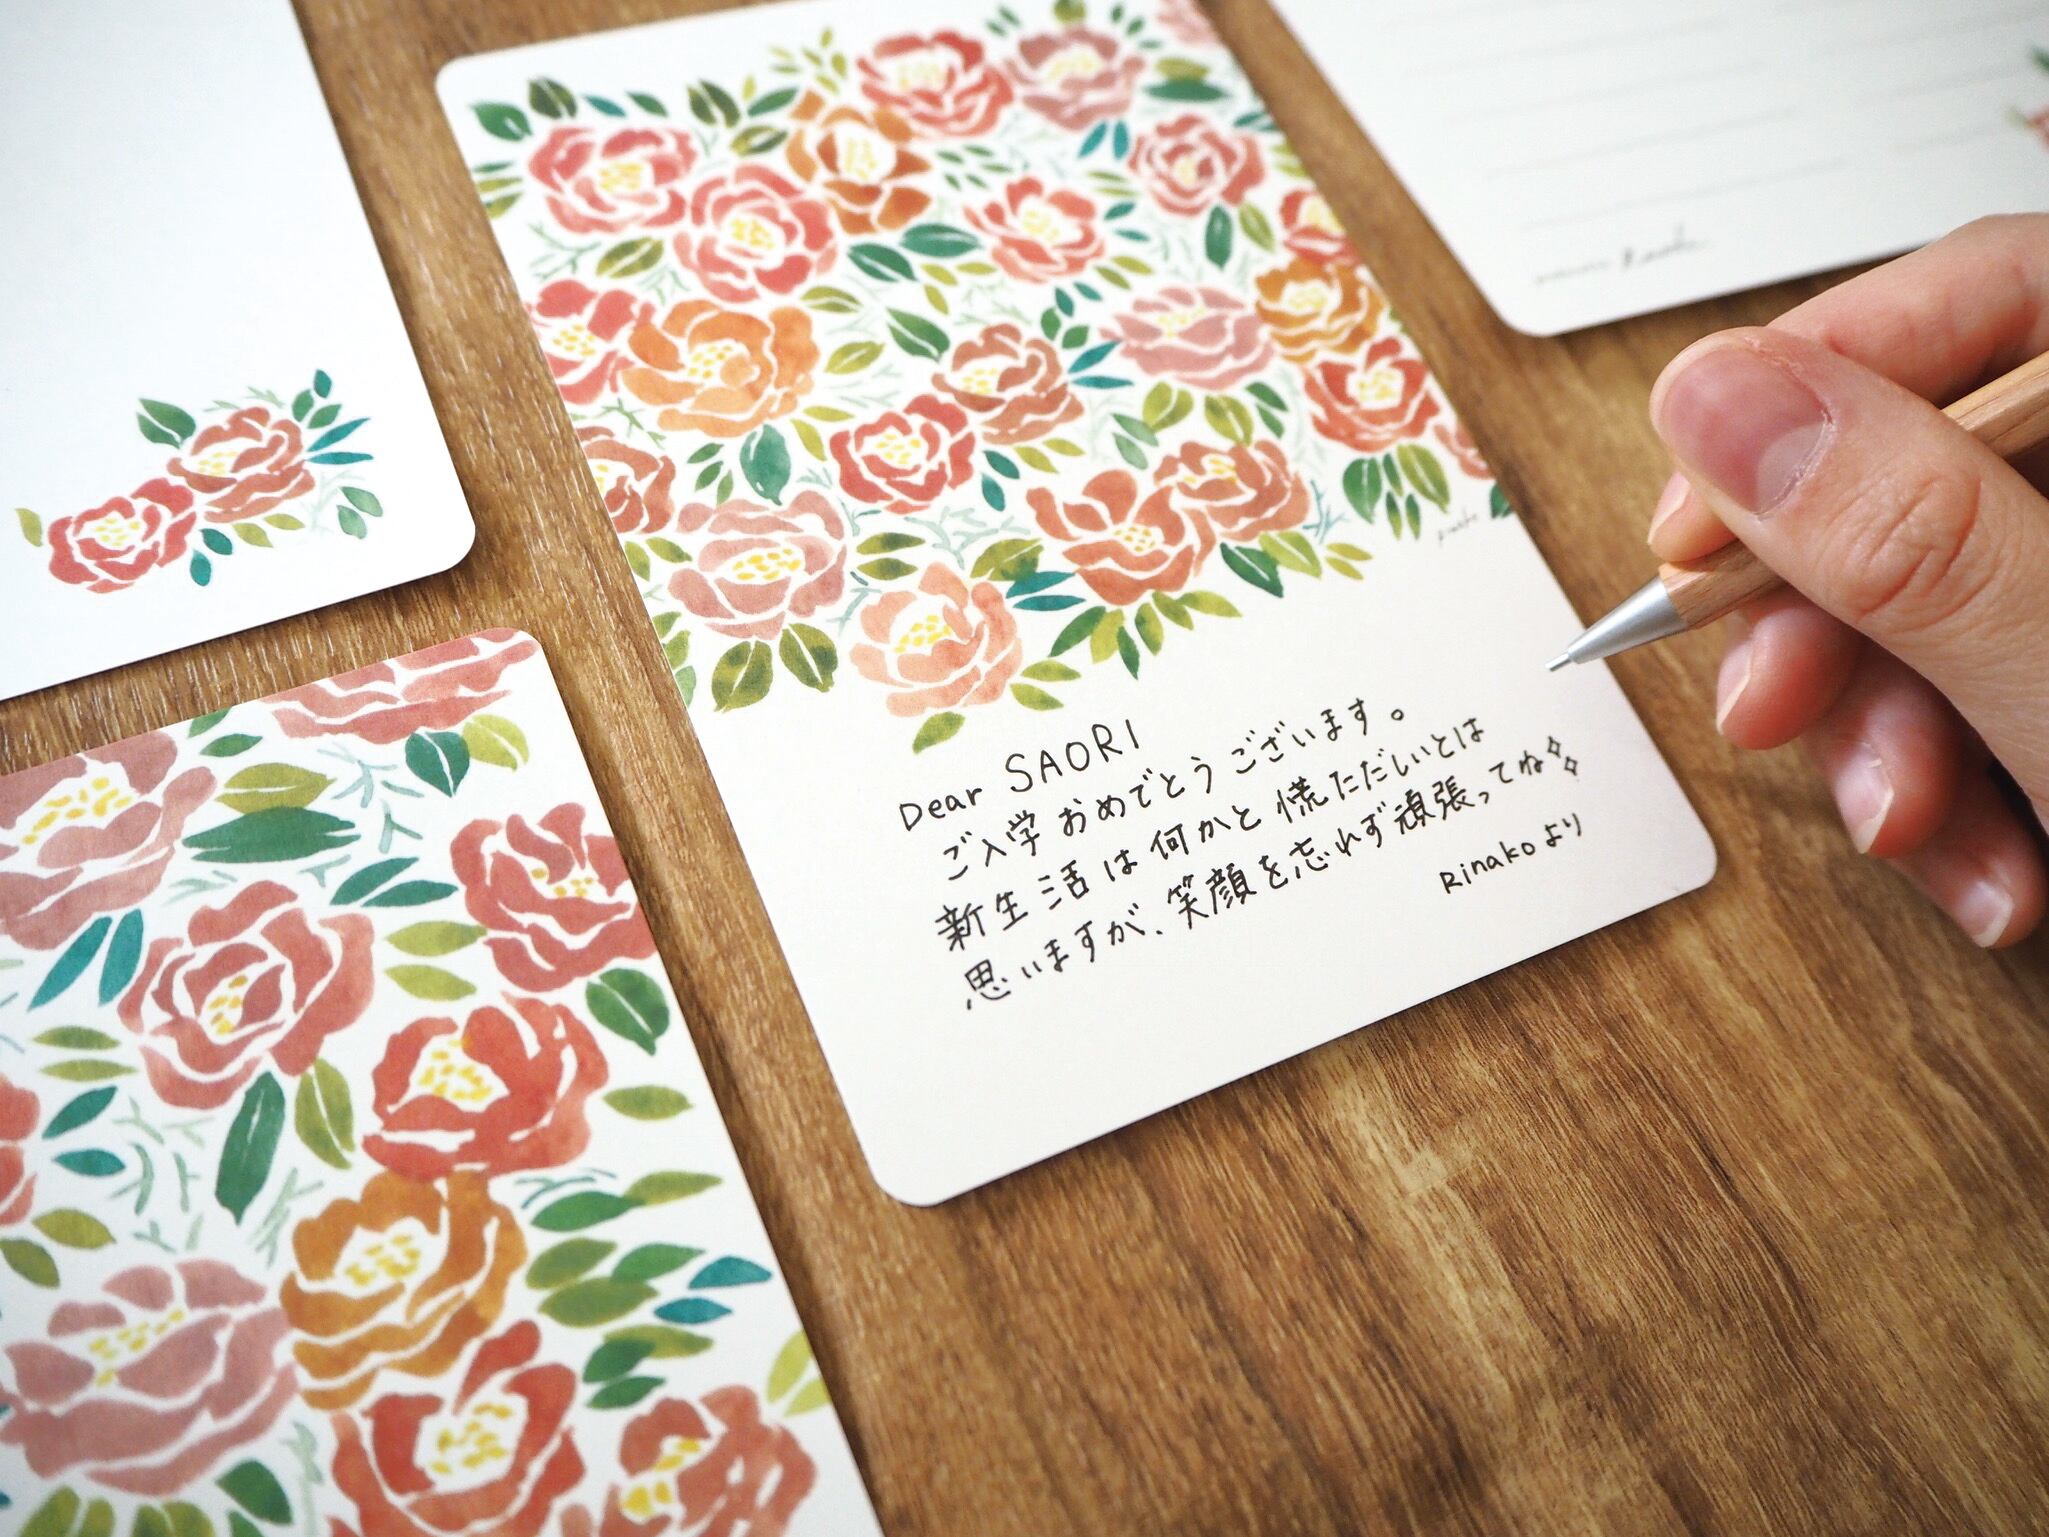 Dear SAORI
ご入学おめでとうございます。
新生活は何かと慌ただしいとは
思いますが、笑顔を忘れず頑張ってね
Rinakoより